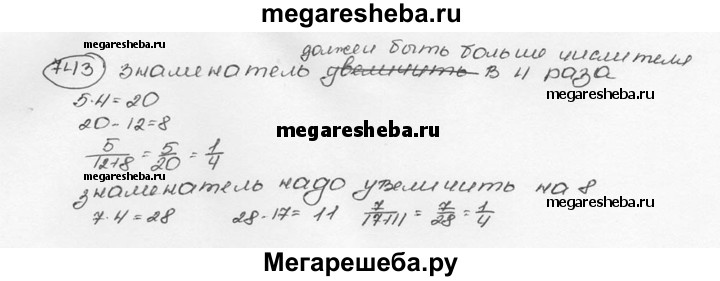 megaresheba.ru
должен быть больше числителя
743 знаменатель увеличить в 4 раза
megaresheba.ru
megaresheba.ru
5·4=20
20-12=8
megaresheba.ru
5/12+8 = 5/20 = 1/4
знаменатель надо увеличить на 8
7·4=28 28-17=11 7/17+11 = 7/28 = 1/4
megaresheba.ru
megaresheba.ru
Мегарешеба.ру